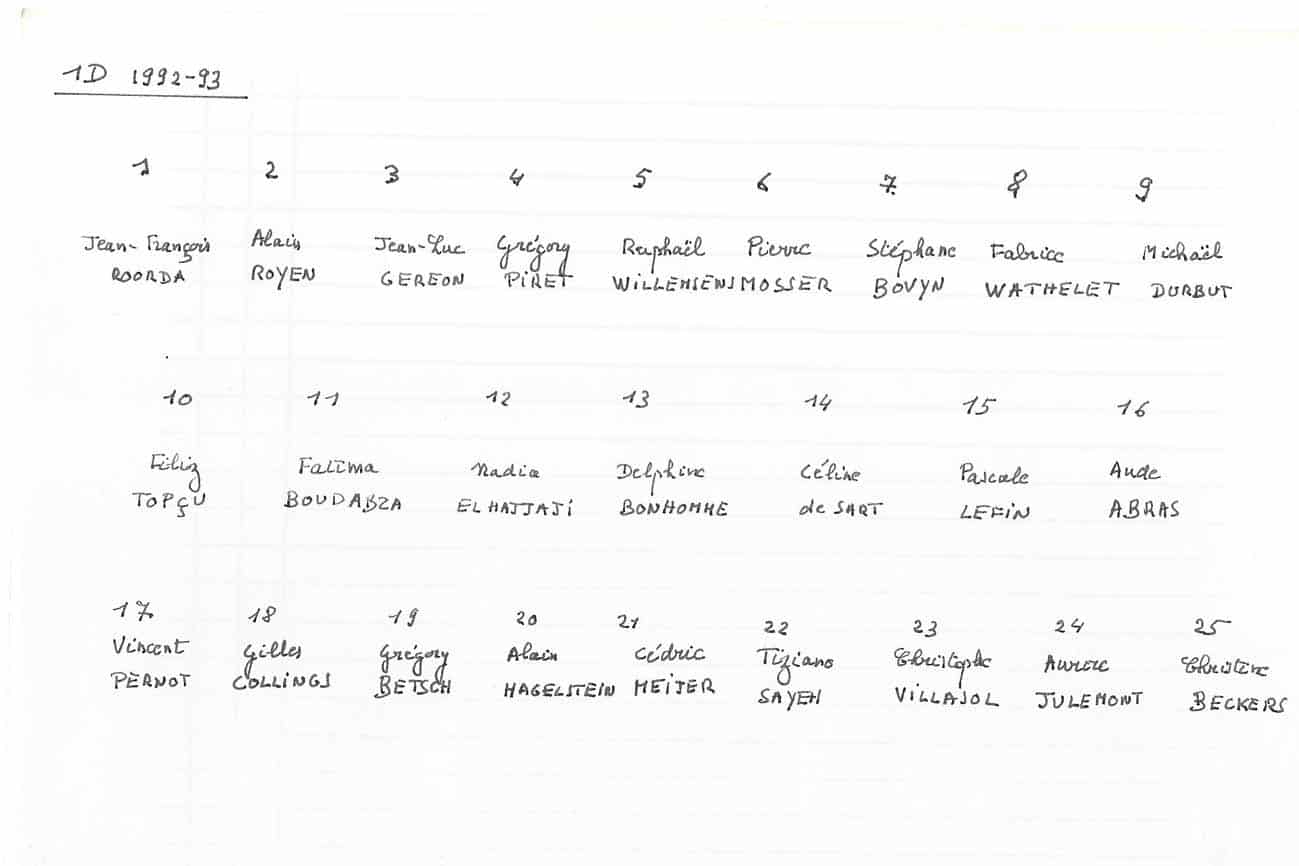 1D 1992-93
1 2 3 4 5 6 7 8 9
Jean-François Alain Jean-Luc Grégory Raphaël Pierre Stéphane Fabrice Michaël
ROORDA ROYEN GEREON PIRET WILLEMSENS MOSSER BOVYN WATHELET DURBUT
10 11 12 13 14 15 16
Filiz Fatima Nadia Delphine Céline Pascale Aude
TOPÇU BOUDABZA EL HAJJAJI BONHOMME de SART LEFIN ABRAS
17 18 19 20 21 22 23 24 25
Vincent Gilles Grégory Alain Cédric Tiziano Christophe Aurore Christine
PERNOT COLLINGS BETSCH HAGELSTEIN MEIJER SAYEH VILLAJOL JULEMONT BECKERS